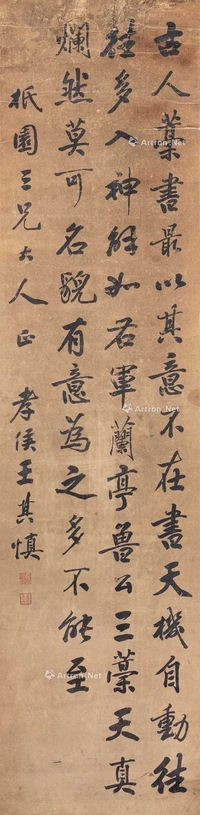 古人藁書最以其意不在書天機自動往
往多入神解如右軍蘭亭魯公三藁天真
爛然莫可名貌有意為之多不能至
祇園三兄大人正 孝侯王其慎
Artron.Net
Artron.Net
Artron.Net